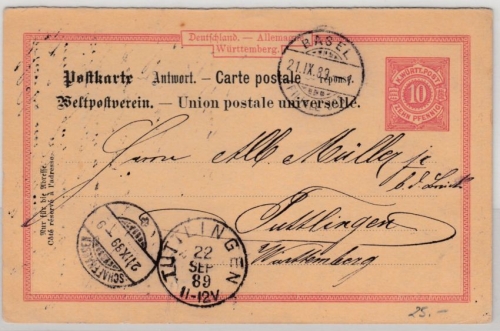 Deutschland. — Allemagne
Württemberg.
Postkarte Antwort. — Carte postale réponse.
Weltpostverein. — Union postale universelle.
K. WÜRTT. POST
10
ZEHN PFENNIG
BASEL
21.IX.89
Nur für die Adresse.
Côté réservé à l'adresse.
Herrn Alb Müller jr
b. d. Brücke
Tuttlingen
Württemberg
SCHAFFHAUSEN
21 IX 89 – 9
TUTTLINGEN
22
SEP
89
11-12V
25.—